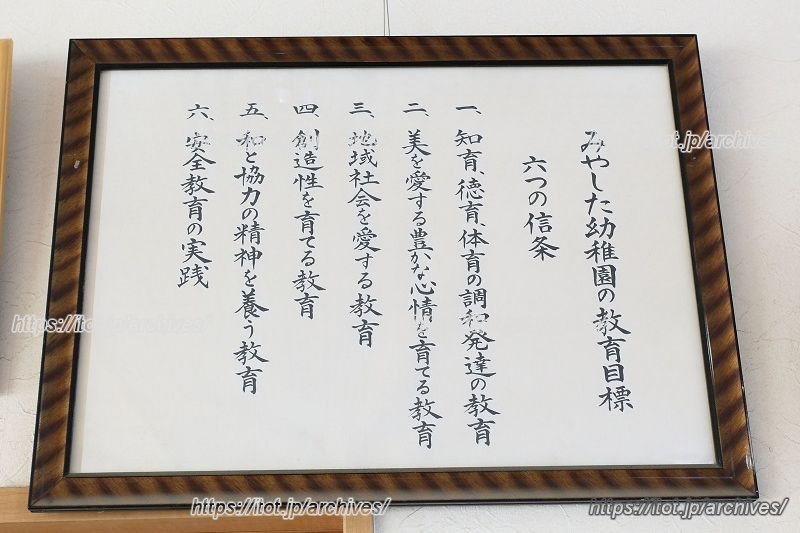 みやした幼稚園の教育目標
六つの信条
一、知育、徳育、体育の調和発達の教育
二、美を愛する豊かな心情を育てる教育
三、地域社会を愛する教育
四、創造性を育てる教育
五、和と協力の精神を養う教育
六、安全教育の実践
https://itot.jp/archives/
https://itot.jp/archives/
https://itot.jp/archives/
https://itot.jp/archives/
https://itot.jp/archives/
https://itot.jp/archives/